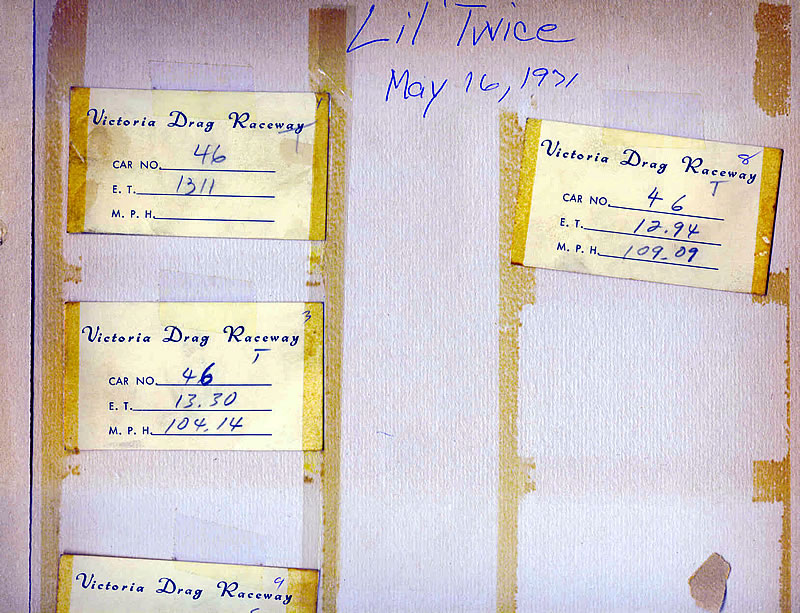 Lil' Twice
May 16, 1971
Victoria Drag Raceway
CAR NO. 46
E. T. 1311
M. P. H.
8
Victoria Drag Raceway
T
CAR NO. 46
E. T. 12.94
M. P. H. 109.09
3
Victoria Drag Raceway
T
CAR NO. 46
E. T. 13.30
M. P. H. 104.14
9
Victoria Drag Raceway